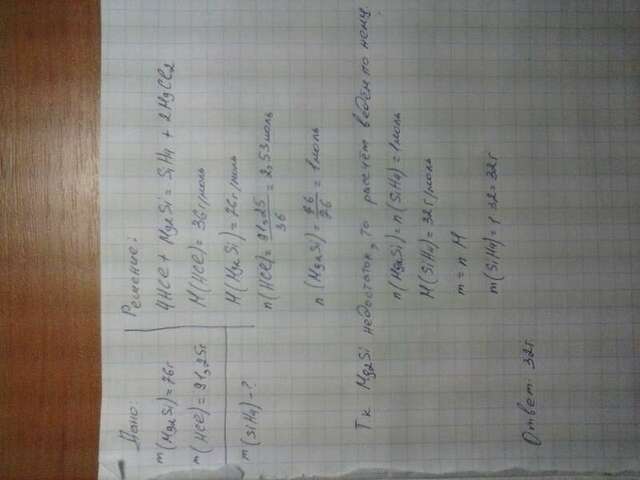 Дано:
m(Mg2Si)=76г
m(HCl)=91,25г
m(SiH4)-?
Решение:
4HCl + Mg2Si = SiH4 + 2MgCl2
M(HCl)=36г/моль
M(Mg2Si)=76г/моль
n(HCl)=91,25/36=2,53моль
n(Mg2Si)=76/76=1моль
Тк Mg2Si недостаток, то рассчёт ведём по нему.
n(Mg2Si)=n(SiH4)=1моль
M(SiH4)=32г/моль
m=n M
m(SiH4)=1 32=32г
Ответ: 32г